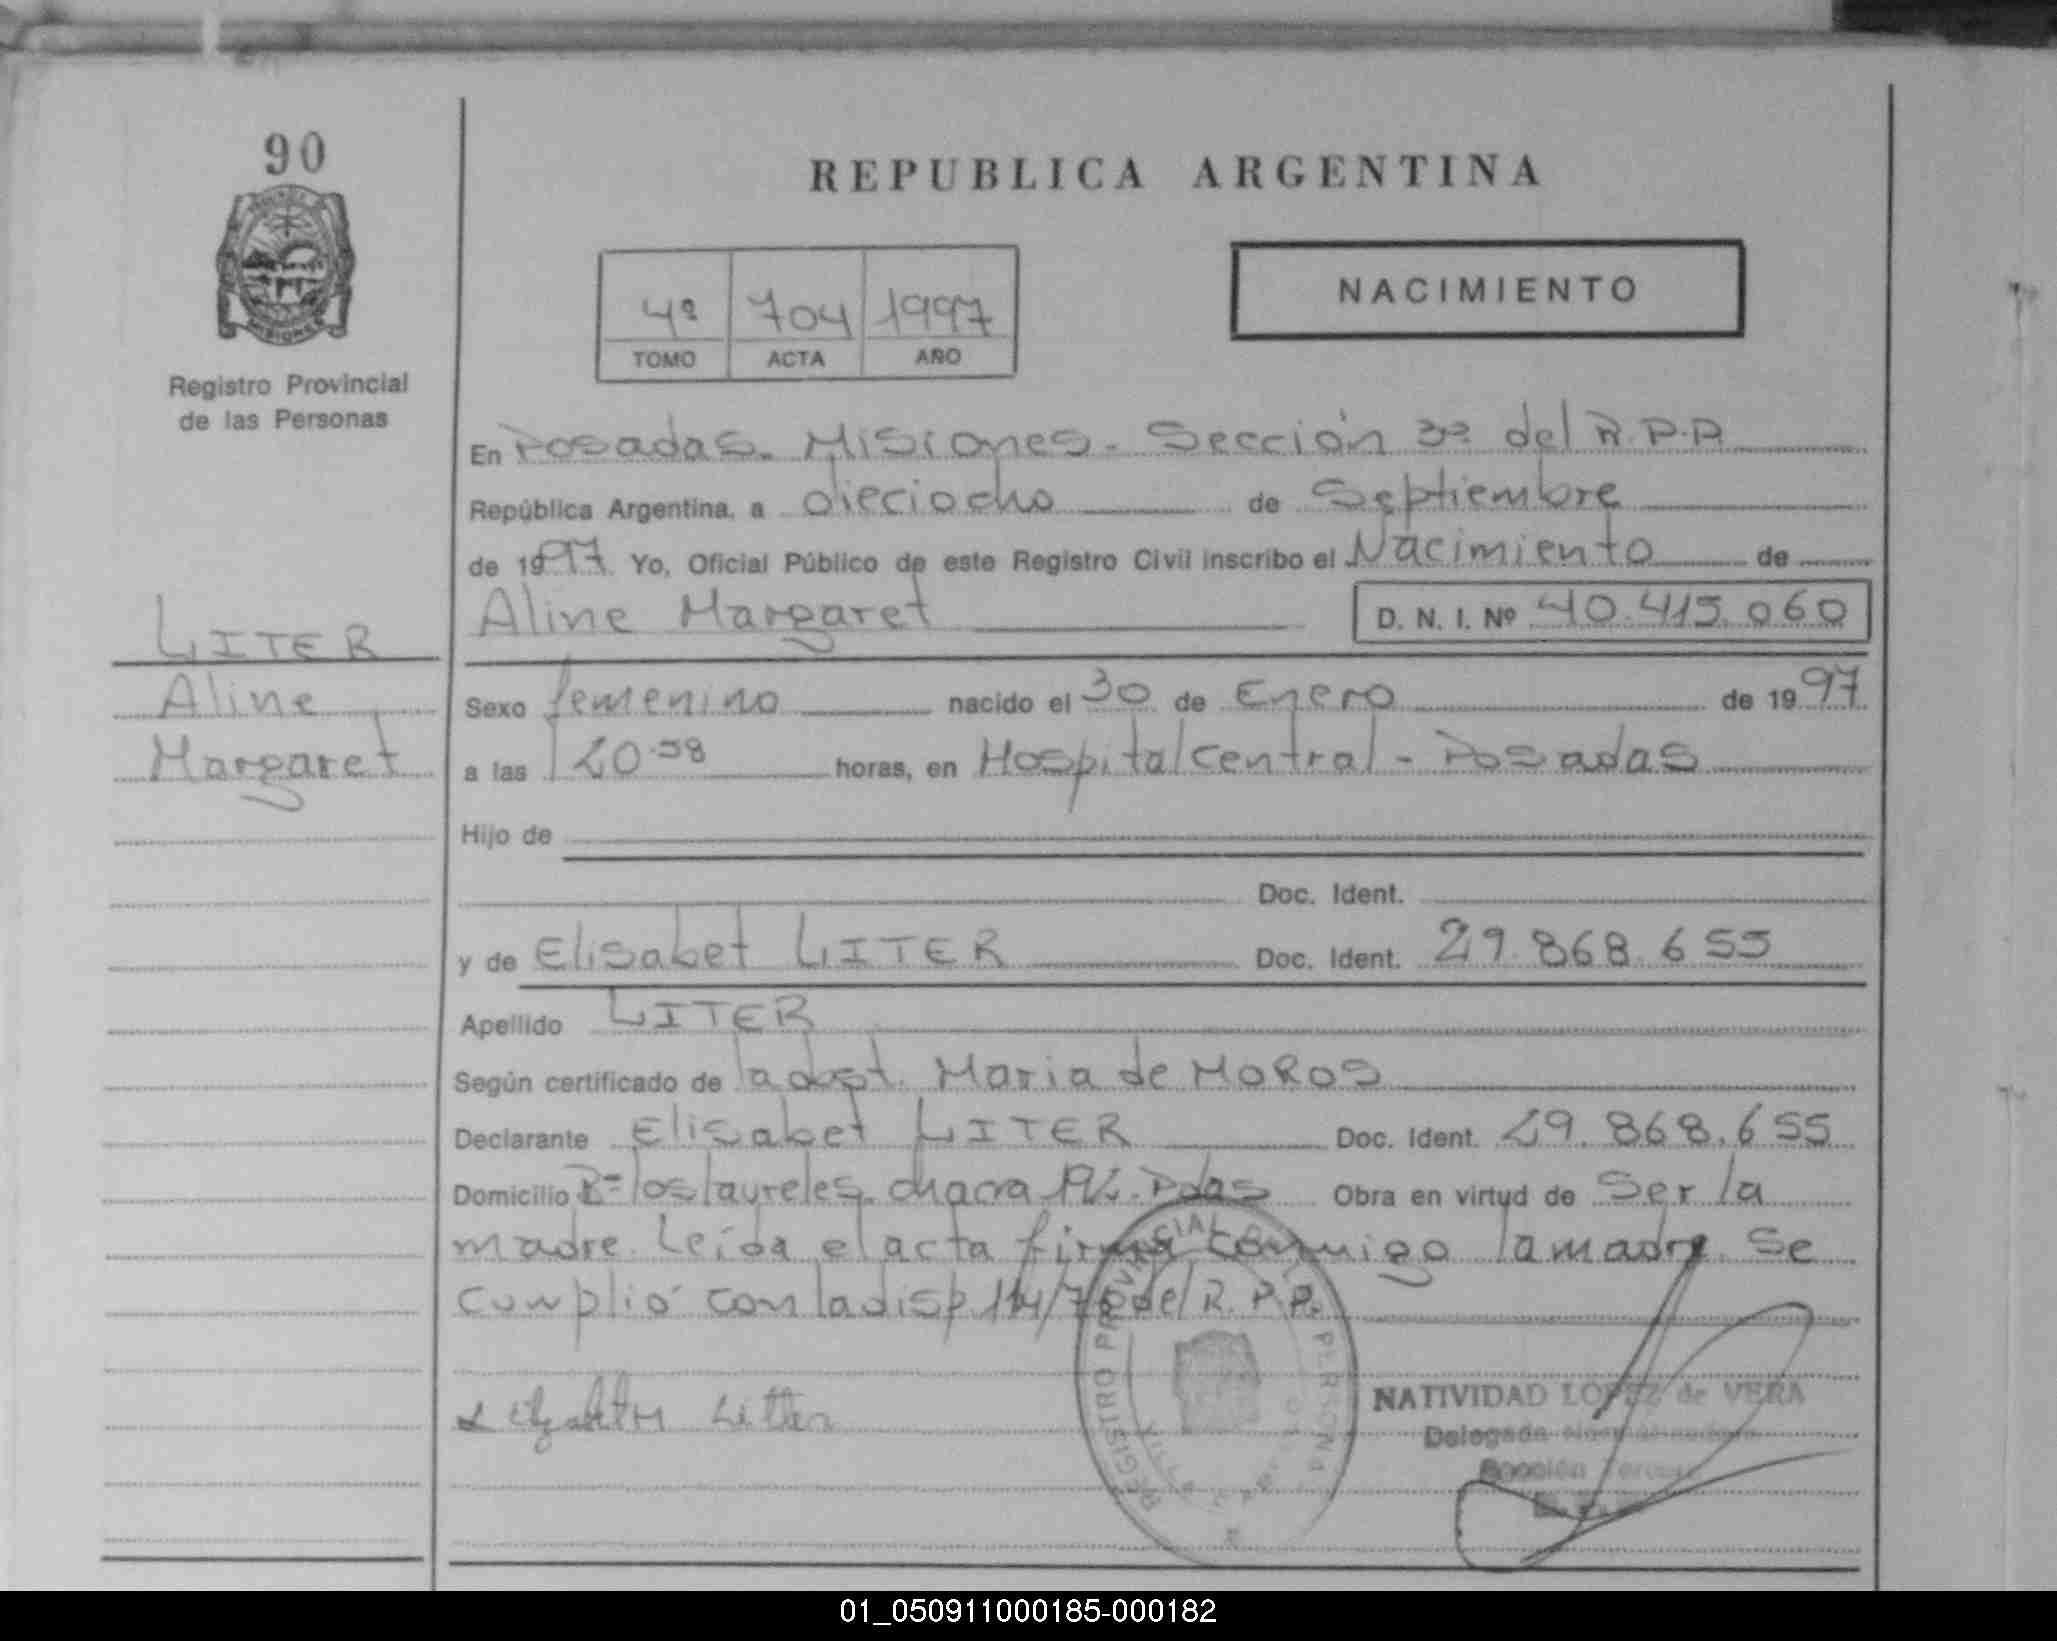 90
REPUBLICA ARGENTINA
MISIONES
Registro Provincial
de las Personas
4º 704 1997
TOMO ACTA AÑO
NACIMIENTO
En Posadas. Misiones. Sección 3ª del R.P.P.
República Argentina, a dieciocho de Septiembre
de 1997. Yo, Oficial Público de este Registro Civil inscribo el Nacimiento de
Aline Margaret D. N. I. Nº 40.415.060
LITER
Aline
Margaret
Sexo femenino nacido el 30 de Enero de 1997
a las 20.58 horas, en Hospital Central - Posadas
Hijo de
Doc. Ident.
y de Elisabet LITER Doc. Ident. 29.868.655
Apellido LITER
Según certificado de la obst. Maria de MOROS
Declarante Elisabet LITER Doc. Ident. 29.868.655
Domicilio Bº los laureles. chacra Pdas Obra en virtud de Ser la
madre. Leída el acta firma conmigo la madre. Se
cumplió con la disp 114/76 del R.P.P.
Litter
REGISTRO PROVINCIAL DE LAS PERSONAS
NATIVIDAD LOPEZ de VERA
Delegada
Sección Tercera
01_050911000185-000182